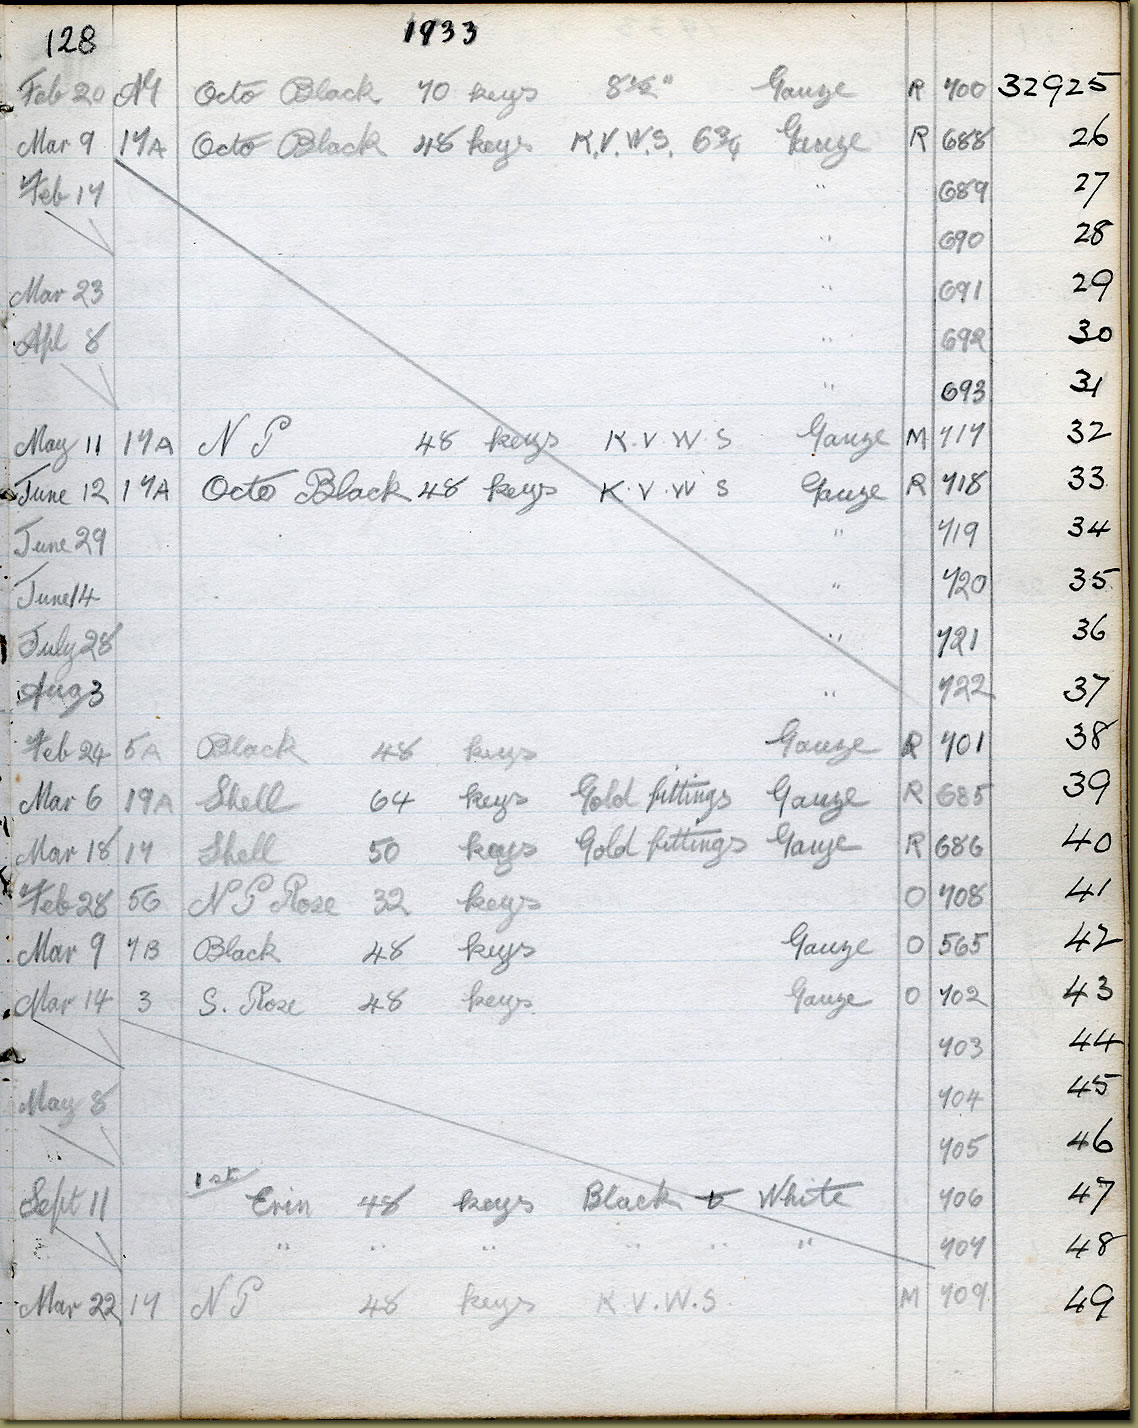 128 1933
Feb 20 Octo Black 70 keys 8½" Gauze R 700 32925
Mar 9 17A Octo Black 48 keys K.V.W.S. 6¾ Gauze R 688 26
Feb 17 " 689 27
" 690 28
Mar 23 " 691 29
Apl 8 " 692 30
" 693 31
May 11 17A N P 48 keys K.V.W.S Gauze M 717 32
June 12 17A Octo Black 48 keys K.V.W S Gauze R 718 33
June 29 " 719 34
June 14 " 720 35
July 28 " 721 36
Aug 3 " 722 37
Feb 24 5A Black 48 keys Gauze R 701 38
Mar 6 19A Shell 64 keys Gold fittings Gauze R 685 39
Mar 18 17 Shell 50 keys Gold fittings Gauze R 686 40
Feb 28 5G N P Rose 32 keys O 708 41
Mar 9 7B Black 48 keys Gauze O 565 42
Mar 14 3 S. Rose 48 keys Gauze O 702 43
703 44
May 8 704 45
705 46
Sept 11 1st Erin 48 keys Black & White 706 47
" " " " " " 707 48
Mar 22 17 N P 48 keys K V.W.S. M 709 49